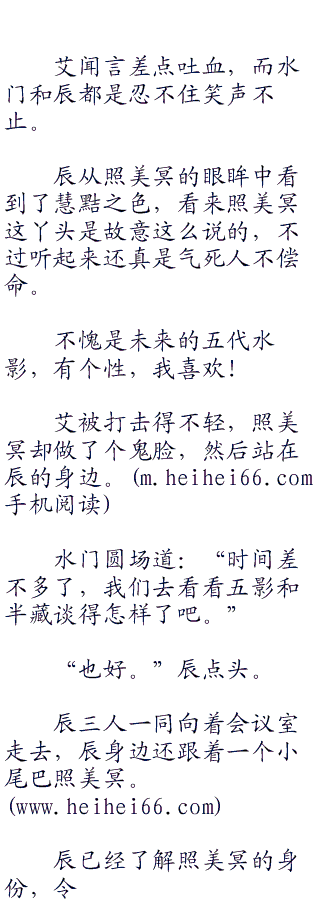 艾闻言差点吐血，而水
门和辰都是忍不住笑声不
止。
辰从照美冥的眼眸中看
到了慧黠之色，看来照美冥
这丫头是故意这么说的，不
过听起来还真是气死人不偿
命。
不愧是未来的五代水
影，有个性，我喜欢！
艾被打击得不轻，照美
冥却做了个鬼脸，然后站在
辰的身边。(m.heihei66.com
手机阅读)
水门圆场道：“时间差
不多了，我们去看看五影和
半藏谈得怎样了吧。”
“也好。”辰点头。
辰三人一同向着会议室
走去，辰身边还跟着一个小
尾巴照美冥。
(www.heihei66.com)
辰已经了解照美冥的身
份，令